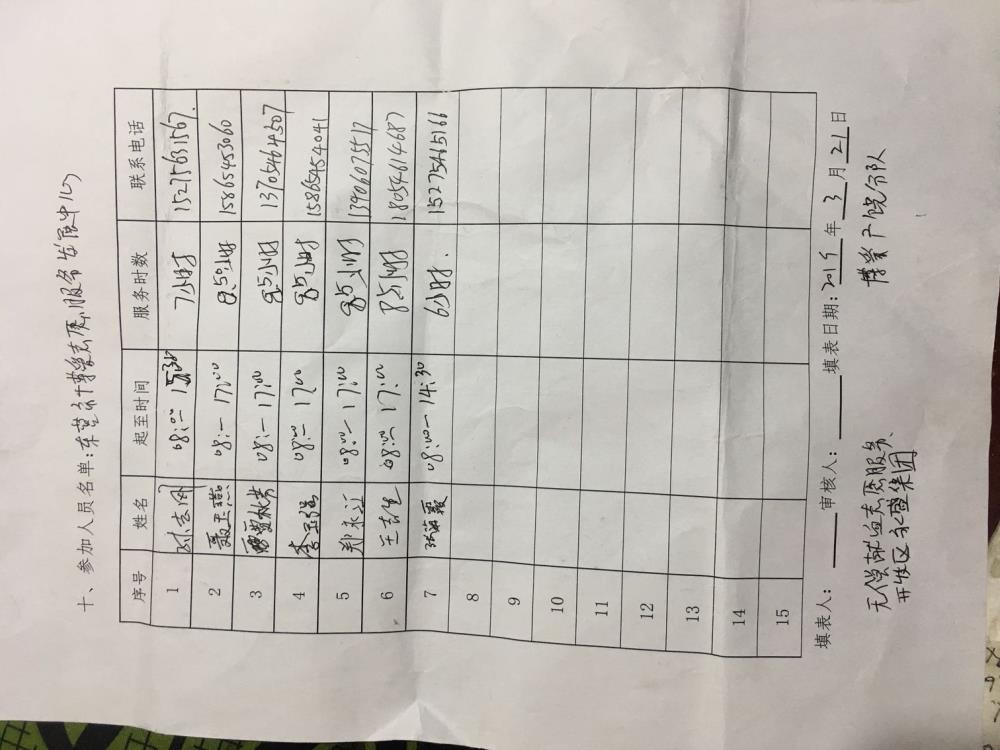 十、参加人员名单:东营市博学志愿服务发展中心
序号 姓名 起至时间 服务时数 联系电话
1 08:00 15:30 7小时 15275631567
2 聂玉燕 08:— 17:00 8.50小时 15865453060
3 08:— 17:00 8.5小时 13705464507
4 李玉强 08:00— 1700 8.5小时 15865454041
5 郑永江 08:00— 17:00 8.5小时
6 王吉生 08:00— 17:00 8.5小时 18054614687
7 08:00— 14:30 6小时. 15275465166
8
9
10
11
12
13
14
15
填表人: 审核人: 填表日期:2015年3月21日
无偿献血志愿服务、 博学广饶分队
开发区永盛集团